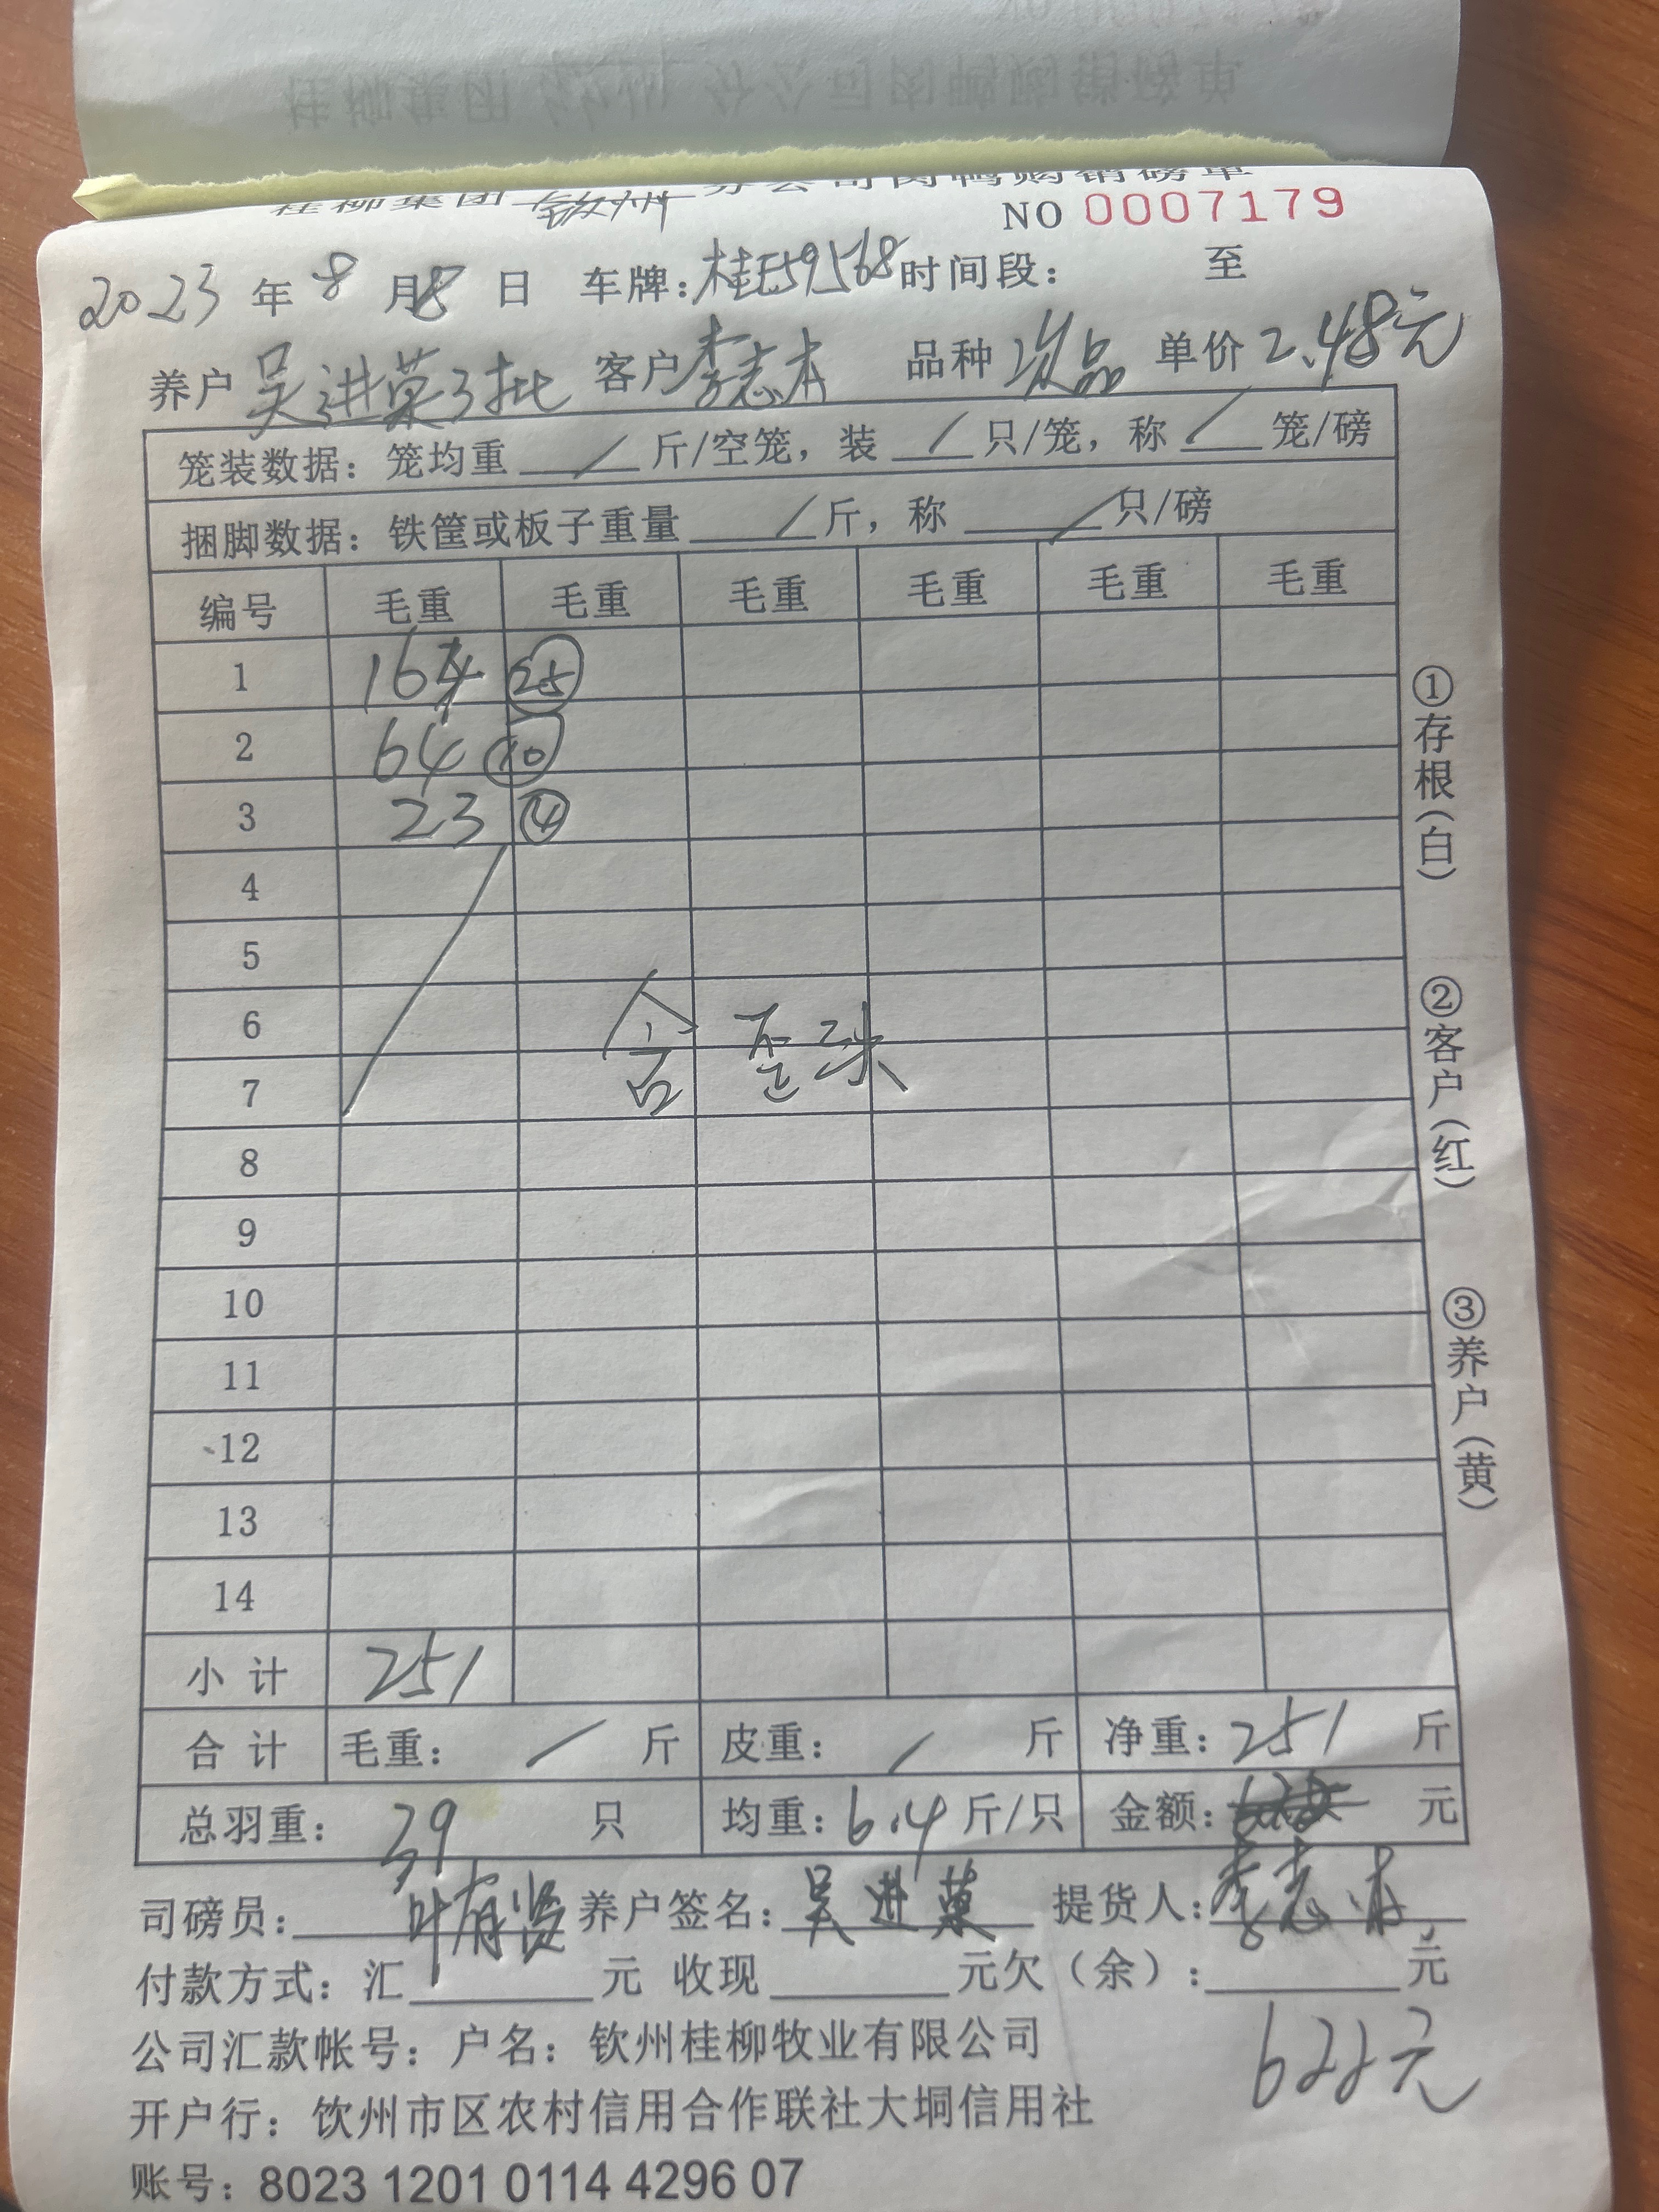 桂柳集团 钦州 分公司肉鸭购销磅单
NO 0007179
2023 年 8 月 8 日 车牌:桂E59568 时间段: 至
养户 吴进菓3批 客户 李志本 品种 次品 单价 2.48元
笼装数据: 笼均重 / 斤/空笼, 装 / 只/笼, 称 / 笼/磅
捆脚数据: 铁筐或板子重量 / 斤, 称 / 只/磅
编号 毛重 毛重 毛重 毛重 毛重 毛重
1 164 25
2 64 10
3 23 4
4
5
6
7
含 歪
8
9
10
11
12
13
14
小 计 251
合 计 毛重: / 斤 皮重: / 斤 净重: 251 斤
总羽重: 39 只 均重: 6.4 斤/只 金额: 元
司磅员: 叶 养户签名: 吴进菓 提货人: 李志本
付款方式: 汇 元 收现 元欠(余): 元
622元
公司汇款帐号: 户名: 钦州桂柳牧业有限公司
开户行: 钦州市区农村信用合作联社大垌信用社
账号: 8023 1201 0114 4296 07
①存根(白)
②客户(红)
③养户(黄)